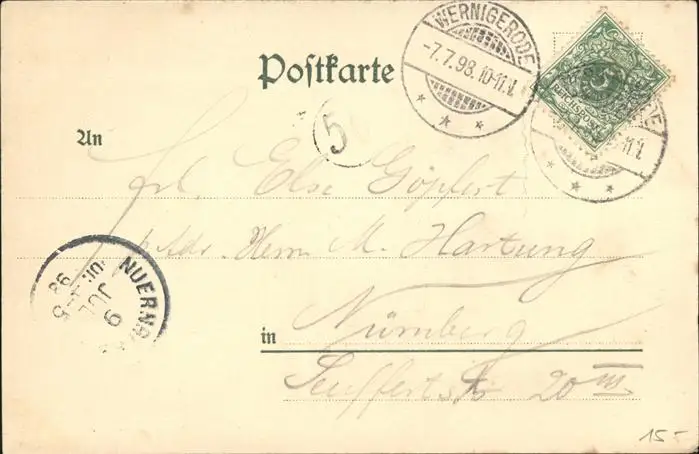 WERNIGERODE
-7.7.98.10-11V.
5
REICHSPOST
Postkarte
5
An
Frl. Else Göpfert
p. Adr. Herrn M. Hartung
NUERNB
9 JUL
98
in Nürnberg
Seuffertstr. 20 III
15-